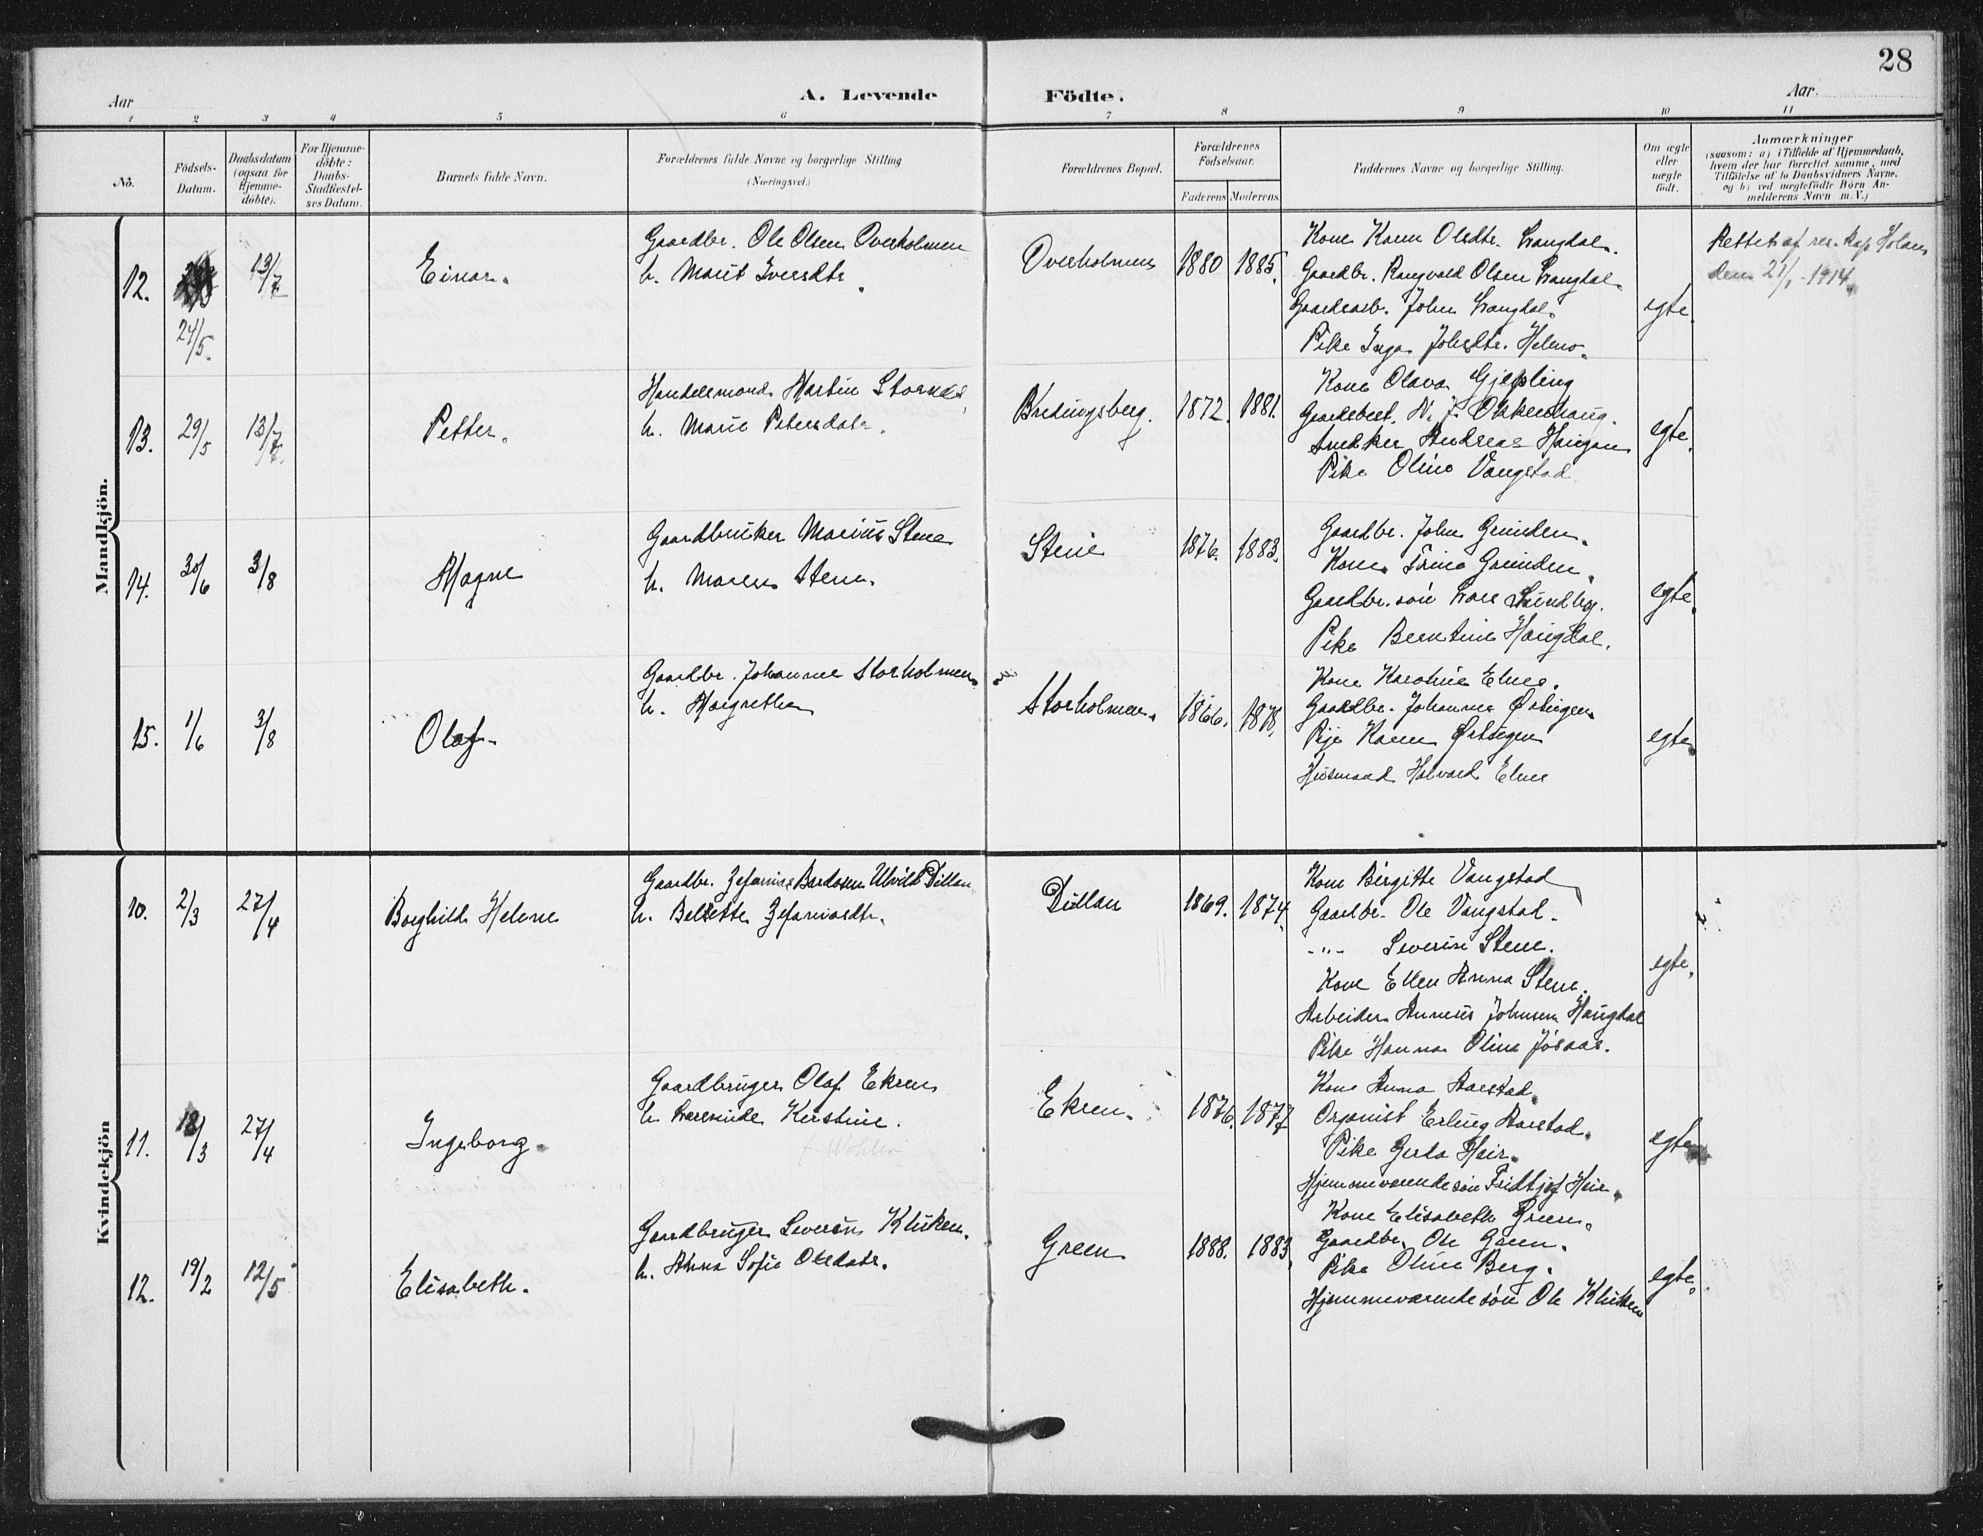 28
Aar
A. Levende Födte.
Aar.
1 2 3 4 5 6 7 8 9 10 11
No.
Födsels-Datum.
Daabsdatum (ogsaa for Hjemme-döbte).
For Hjemme-döbte: Daabs-Stadfæstel-ses Datum.
Barnets fulde Navn.
Forældrenes fulde Navne og borgerlige Stilling
(Næringsvei.)
Forældrenes Bopæl.
Forældrenes Födselsaar.
Faderens Moderens
Faddernes Navne og borgerlige Stilling.
Om ægte eller uægte födt.
Anmærkninger
(saasom: a) i Tilfælde af Hjemmedaab,
hvem der har forrettet samme, med
Tilföielse af to Daabsvidners Navne.
og b) ved uægtefödte Börn An-
melderens Navn m. V.)
Mandkjön.
12.
24/5.
13/7
Einar.
Gaardbr. Ole Olsen Overholmen
h. Marit Iversdtr.
Overholmen
1880 1885.
Kone Karen Olsdtr. Langdal.
Gaardbr. Rangvald Olsen Langdal.
John Langdal.
Pike Inga Johsdtr. Helmo.
egte.
Rettet af res. kap. Holam
den 21/1-1914.
13.
29/5
13/7.
Petter.
Handelsmand Martin Stornes,
h. Marie Petersdatr.
Bredingsberg.
1872. 1881.
Kone Olava Gjepling
N. J. Okkenhaug.
Snedker Andreas Haugan
Pike Oline Vangstad
egte.
14.
30/6
3/8
Magne
Gaardbruker Marius Stene
h. Maren Stene.
Stene
1876. 1883.
Gaardbr. John Grunden.
Kone Trine Grunden.
Gaardbr. søn Lars Lundberg.
Pike Berntine Haugdal.
egte.
15.
1/6
3/8
Olaf.
Gaardbr. Johannes Storholmen
h. Margrethe
Storholmen.
1866. 1878.
Kone Karoline Elnes.
Gaardbr. Johannes Østingen
Pige Karen Østingen
Husmand Halvard Elnes
egte
Kvindekjön
10.
2/3
27/4
Borghild Helene
Gaardbr. Zefanias Bardosen Ulvild Dillan
h. Betsette Zefaniasdtr.
Dillan
1869. 1874.
Kone Birgitte Vangstad
Gaardbr. Ole Vangstad.
-"- Severin Stene.
Kone Ellen Anna Stene.
Arbeider Anneus Johnsen Haugdal
Pike Hanna Oline Jøsaas.
egte.
11.
18/3
27/4
Ingeborg.
Gaardbruger Olaf Ekren
h. Laresinde Kirstine.
f. Wohlen
Ekren.
1876. 1877
Kone Anna Aarstad.
Organist Erling Aarstad.
Pike Gerda Heir.
Hjemmeværende søn Fridtjof Heir.
egte
12.
19/2
12/5
Elisabeth.
Gaardbruger Severin Kluken.
h. Anna Sofie Olesdatr.
Green
1888. 1883.
Kone Elisabeth Green.
Gaardbr. Ole Green.
Pike Oline Berg.
Hjemmeværende søn Ole Kluken
egte.